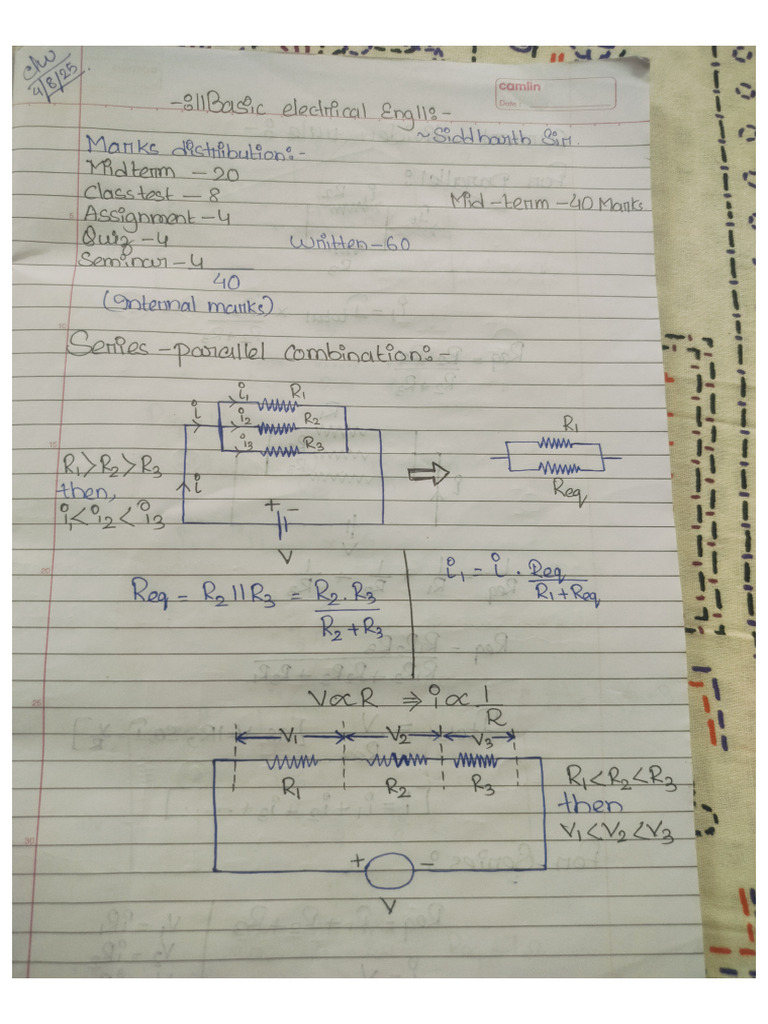 C/W
4/8/25
camlin
Date :
-:||Basic electrical Eng||:-
~Siddharth Sir.
Marks distribution:-
Midterm - 20
Class test - 8
Mid-term - 40 Marks
Assignment - 4
Quiz - 4
Written - 60
Seminar - 4
40
(Internal marks)
Series - parallel combination:-
i i₁ R₁
i₂ R₂
i₃ R₃
R₁>R₂>R₃
then,
i₁<i₂<i₃
i
+ -
V
⇒
R₁
Req
Req = R₂||R₃ = R₂.R₃ / R₂+R₃
i₁ = i . Req / R₁+Req
V∝R ⇒ i∝1/R
V₁ V₂ V₃
R₁ R₂ R₃
R₁<R₂<R₃
then
V₁<V₂<V₃
+ -
V